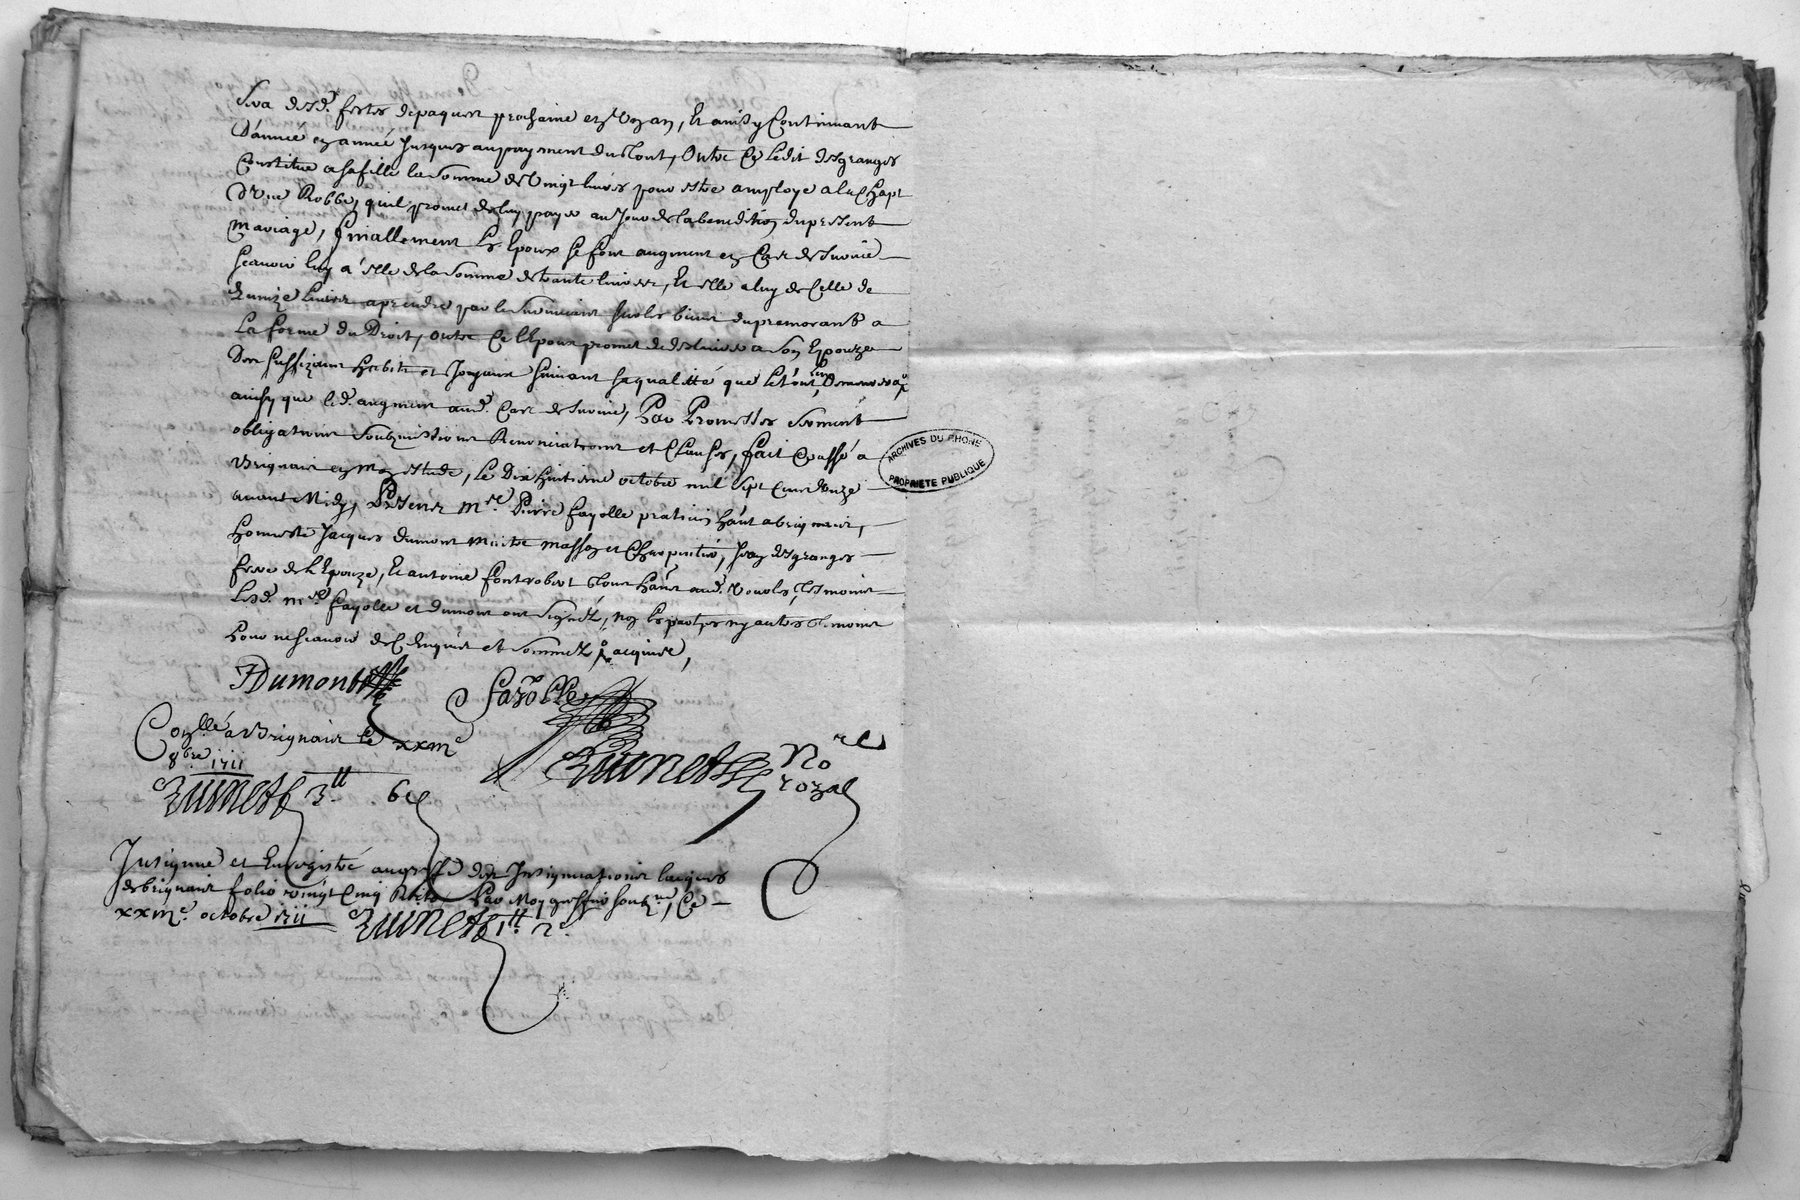 sera desd. festes de paques prochaine en un an, Et ainsy Continuant
D'année en année Jusques au payment du tout, Outre Ce Ledit desgranges
Constitue a sa fille la somme de Vingt livres pour estre amploye a l'achapt
d'Une Robbe, quil promet de luy payer au Jour de la benediction du present
Mariage, finallement Les Epoux se font augment en Cas de survie
scavoir luy a elle de la somme de trante livres, Et elle a luy de Celle de
quinze livres a prendre par le survivant sur les biens du premorant a
La forme du Droit, outre Ce l'Epoux promet de a son Epouze
Des suffizans habits et Joyaux suivant sa qualitté que le tout luy
ainsy que led. augment aud. Cas de survie, Par Promesses serment
obligations soubzmissions Renonciations et Clauses, fait et passé a
Brignais en mon estude, Le Dix huitieme octobre mil sept Cent Unze
avant Midy, Presens Mre. Pierre fayolle praticien hant a brignais,
honneste Jacques dumont Maitre masson et Charpentier, Jean desgranges
frere de l'Epouze, Et antoine fontrobert tous hans aud. Vourles, tesmoins
Lesd. mre fayolle et dumont ont signez, non les parties ny autres temoins
pour ne scavoir de Ce Enquis et sommez
JDumont
fayolle
Conllé a Brignais le xxme
8bre 1711
3tt 6
Nore
royal
Insignué et Enregistré au greffe des Insignuations laiques
de brignais folio vingt Cinq Par Moy greffier soubzné, Ce
xxme. octobre 1711 1tt
ARCHIVES DU RHONE
PROPRIETE PUBLIQUE